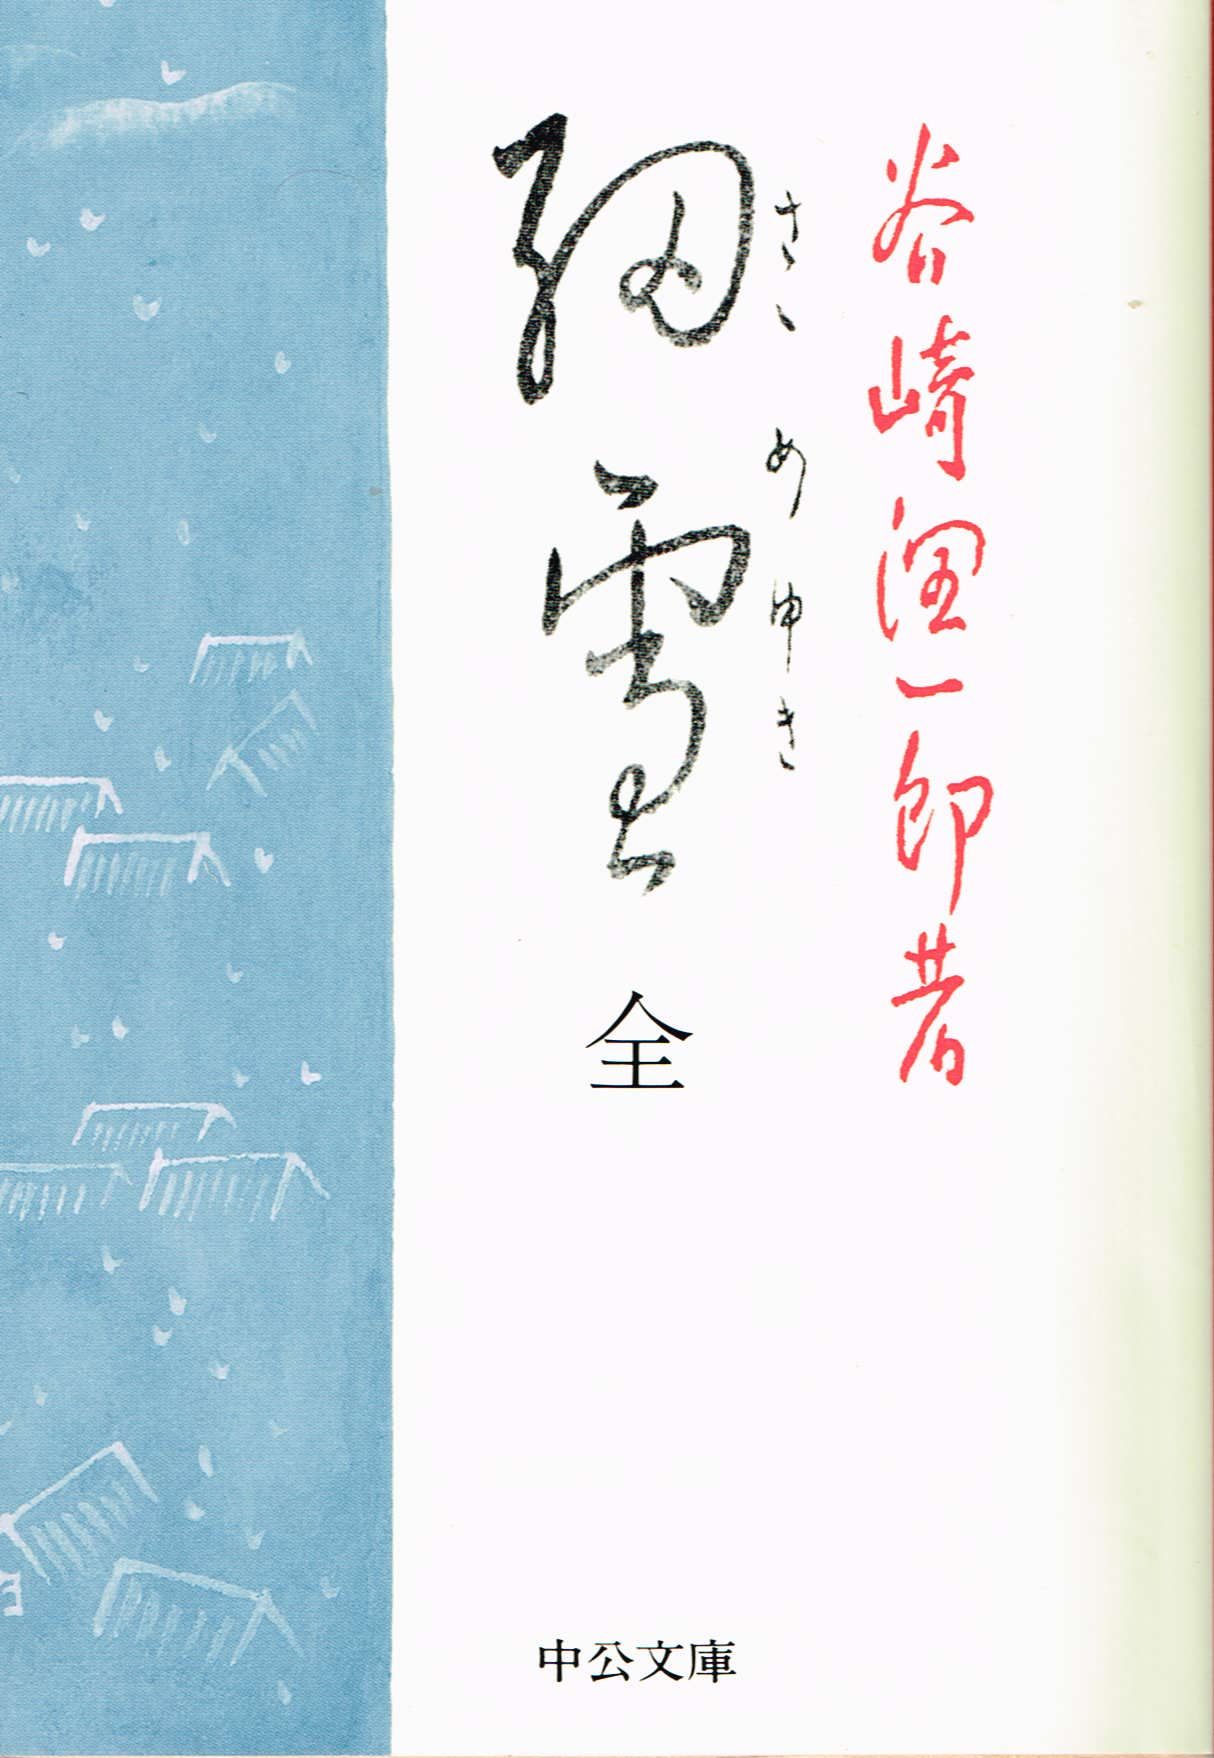 谷崎潤一郎著
さゝめゆき
細雪
全
中公文庫